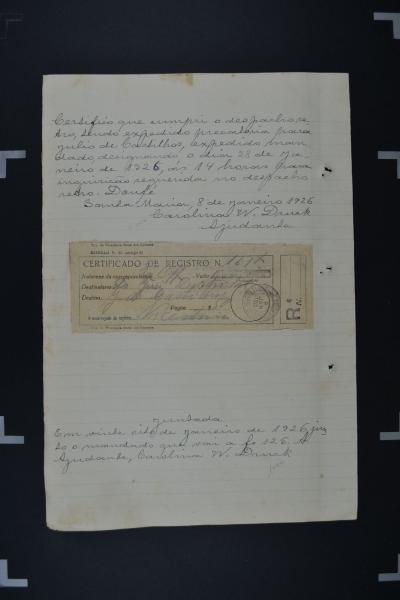 Certifico que cumpri o despacho re-
tro, sendo expedido precatoria para
Julio de Castilhos, expedido man
dado, designando o dia 28 de Ja-
neiro de 1926, ás 14 horas para
inquirição requerida no despacho
retro. Doufé
Santa Maria, 8 de janeiro 1926
Carolina W. Druck
Ajudante
CERTIFICADO DE REGISTRO N.
Natureza da correspondencia
Destinatario
Destino
Pagou
O encarregado do registro,
R
N.
Juntada
Em vinte oito de janeiro de 1926, jun
to o mandado que vai a fs 126. A
Ajudante, Carolina W. Druck